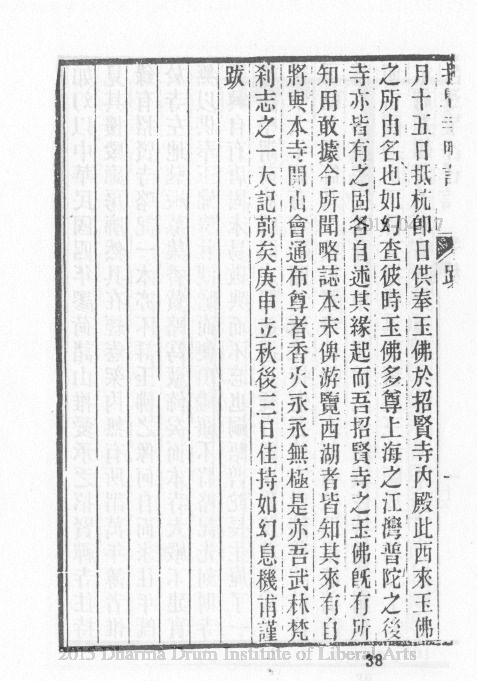 月十五日抵杭卽日供奉玉佛於招賢寺內殿此西來玉佛
之所由名也如幻查彼時玉佛多尊上海之江灣普陀之後
寺亦皆有之固各自述其緣起而吾招賢寺之玉佛旣有所
知用敢據今所聞略誌本末俾游覽西湖者皆知其來有自
將與本寺開山會通布尊者香火永永無極是亦吾武林梵
刹志之一大記莂矣庚申立秋後三日住持如幻息機甫謹
跋
38
2015 Dharma Drum Institute of Liberal Arts